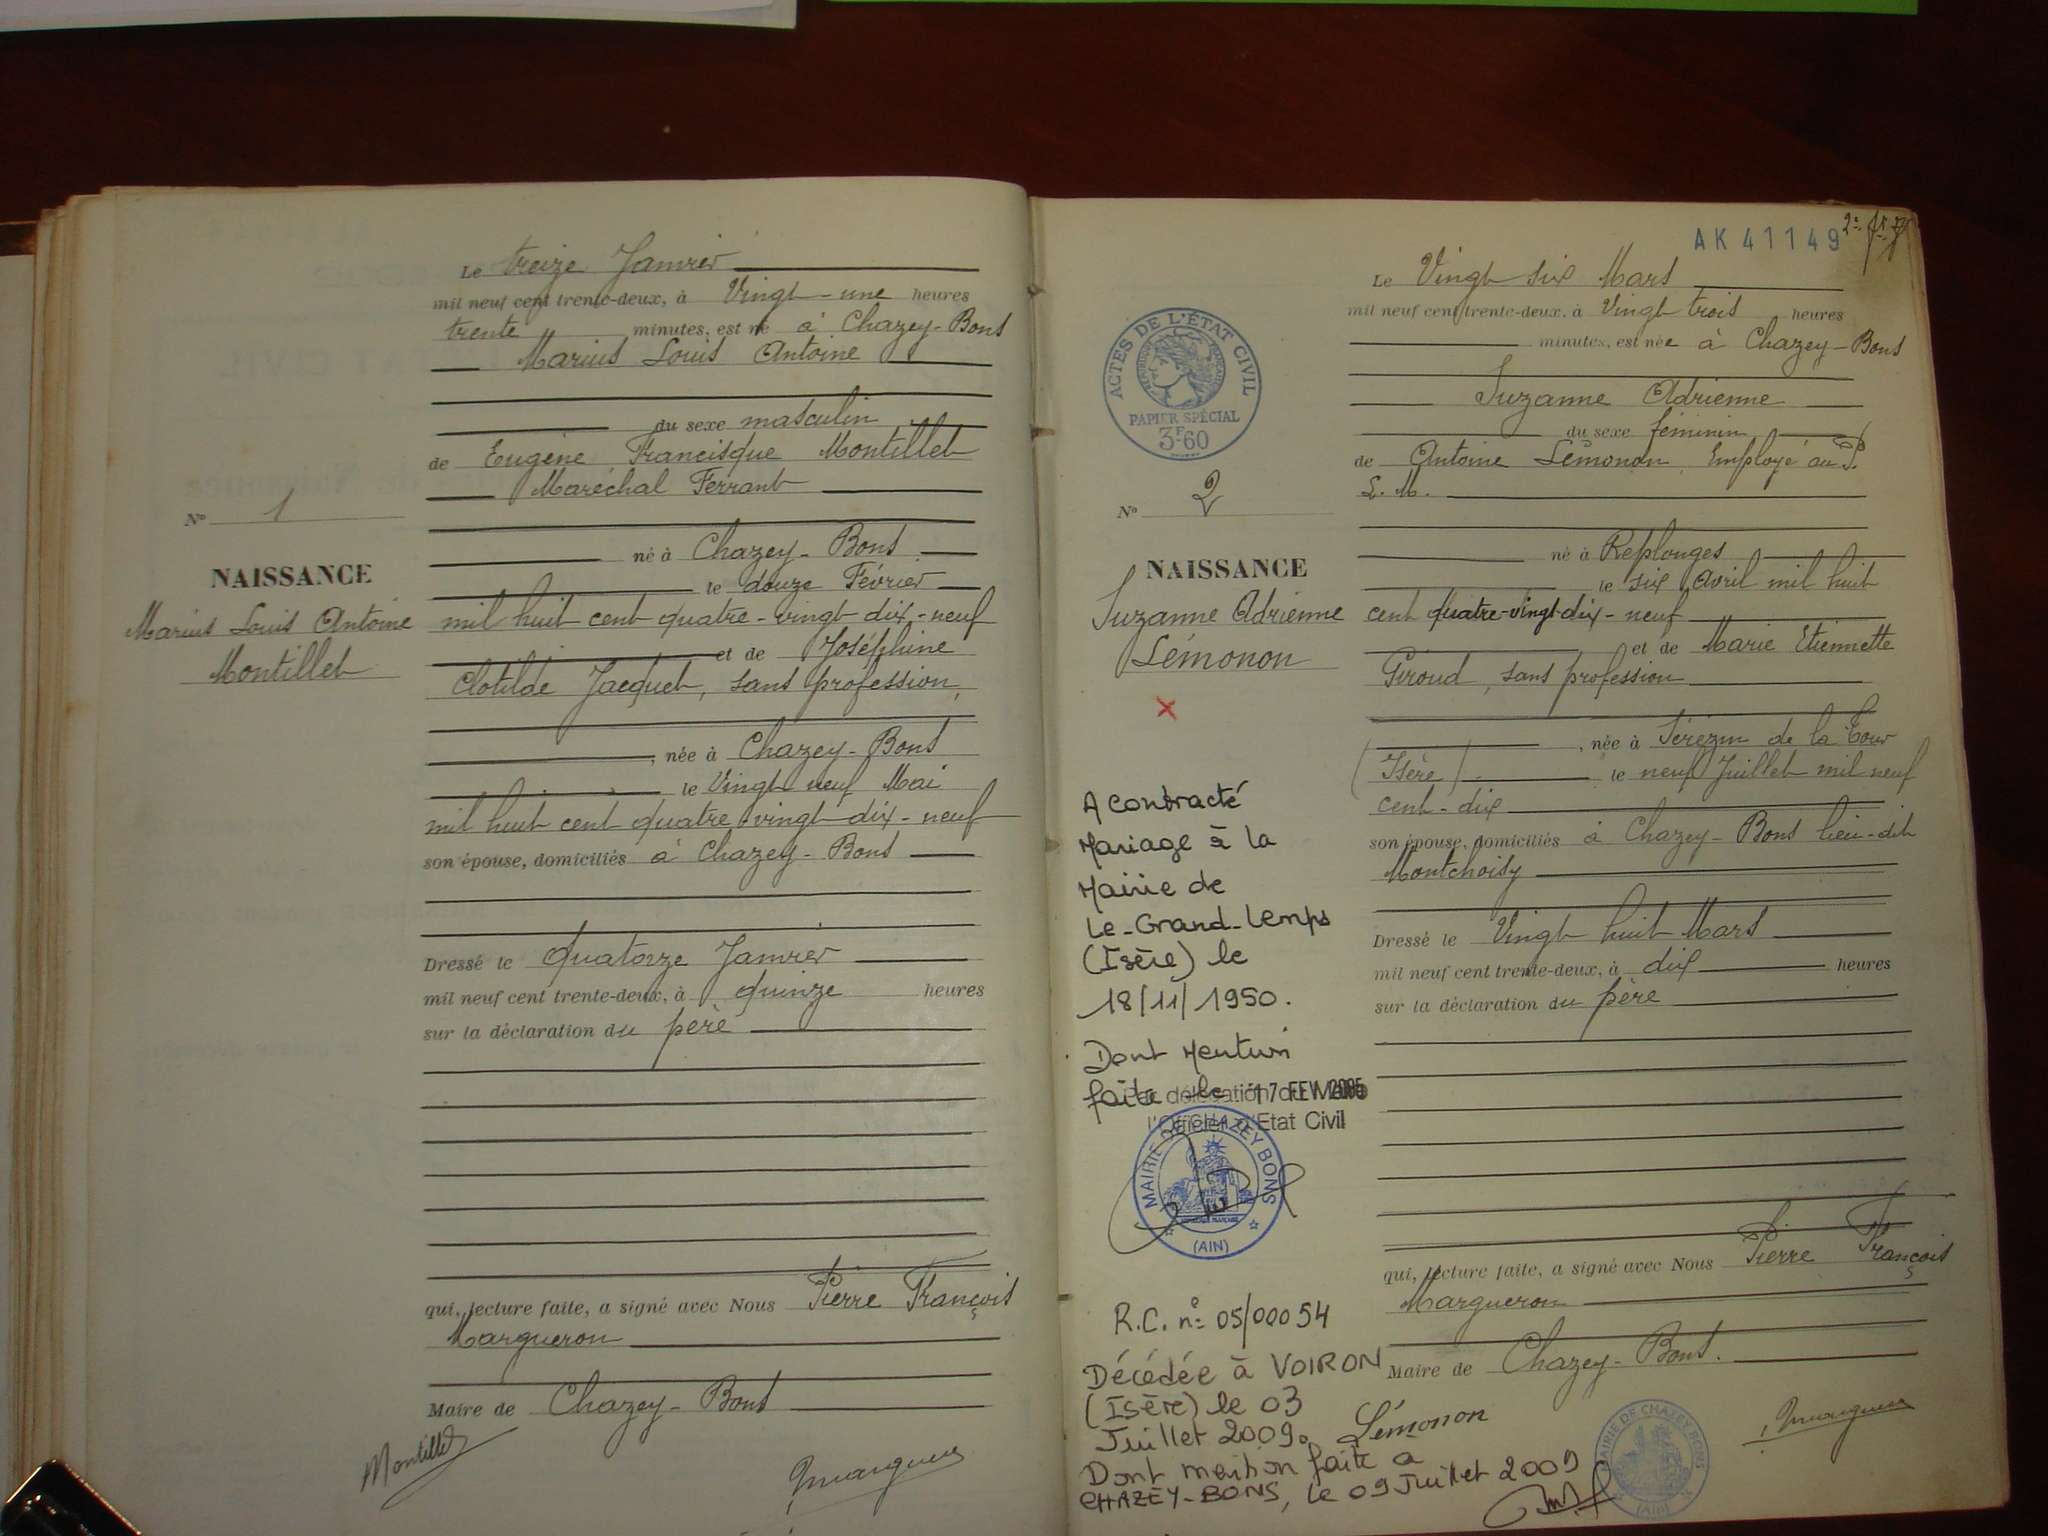 Le treize Janvier
mil neuf cent trente-deux, à Vingt-une heures
trente minutes, est né à Chazey-Bons
Marius Louis Antoine
du sexe masculin
de Eugène Francisque Montillet
Maréchal Ferrant
né à Chazey-Bons
le douze Février
mil huit cent quatre-vingt-dix-neuf
et de Joséphine
Clotilde Jacquet, sans profession,
, née à Chazey-Bons
le Vingt neuf Mai
mil huit cent quatre-vingt-dix-neuf
son épouse, domiciliés à Chazey-Bons
Dressé le Quatorze Janvier
mil neuf cent trente-deux, à quinze heures
sur la déclaration du père
qui, lecture faite, a signé avec Nous Pierre François
Margueron
Maire de Chazey-Bons
Montillet
Margueron
No 1
NAISSANCE
Marius Louis Antoine
Montillet
AK 41149
2e
ACTES DE L'ÉTAT CIVIL
RÉPUBLIQUE FRANÇAISE
PAPIER SPÉCIAL
3F.60
No 2
NAISSANCE
Suzanne Adrienne
Lémonon
×
A contracté
Mariage à la
Mairie de
Le-Grand-Lemps
(Isère) le
18/11/1950.
Dont Mention
faite le 17 FEV. 2005
délégation du Maire
l'Officier d'Etat Civil
MAIRIE DE CHAZEY BONS
RÉPUBLIQUE FRANÇAISE
(AIN)
R.C. n° 05/00054
Décédée à VOIRON
(Isère) le 03
Juillet 2009.
Dont mention faite a
CHAZEY-BONS, le 09 Juillet 2009
Le Vingt six Mars
mil neuf cent trente-deux, à Vingt trois heures
minutes, est née à Chazey-Bons
Suzanne Adrienne
du sexe féminin
de Antoine Lémonon, Employé au P.
L. M.
né à Replonges
le six Avril mil huit
cent quatre-vingt-dix-neuf
et de Marie Etiennette
Giroud, sans profession
, née à Sérézin de la Tour
(Isère) le neuf Juillet mil neuf
cent-dix
son épouse, domiciliés à Chazey-Bons lieu-dit
Montchoisy
Dressé le Vingt huit Mars
mil neuf cent trente-deux, à dix heures
sur la déclaration du père
qui, lecture faite, a signé avec Nous Pierre François
Margueron
Maire de Chazey-Bons.
Lémonon
MAIRIE DE CHAZEY BONS
(AIN)
Margueron